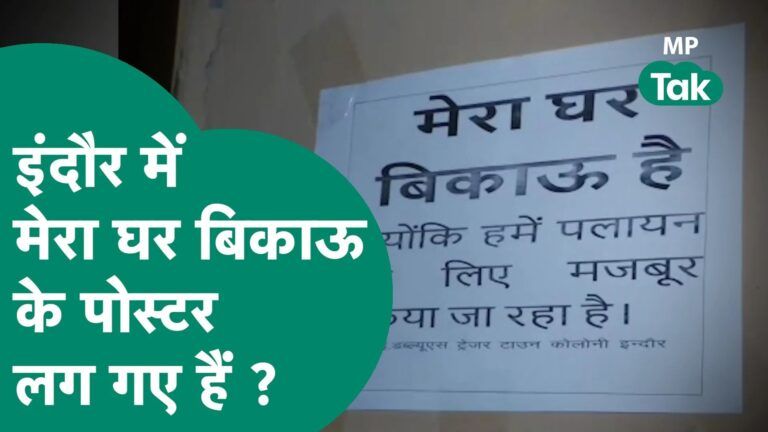 MP
Tak
इंदौर में
मेरा घर बिकाऊ
के पोस्टर
लग गए हैं ?
मेरा घर
बिकाऊ है
हमें पलायन
लिए मजबूर
जा रहा है।
ट्रेजर टाउन कोलोनी इन्दौर